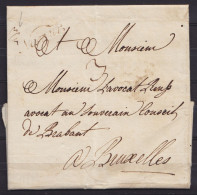 A Monsieur
Monsieur l'avocat
avocat au Souverain Conseil
de Brabant
a Bruxelles